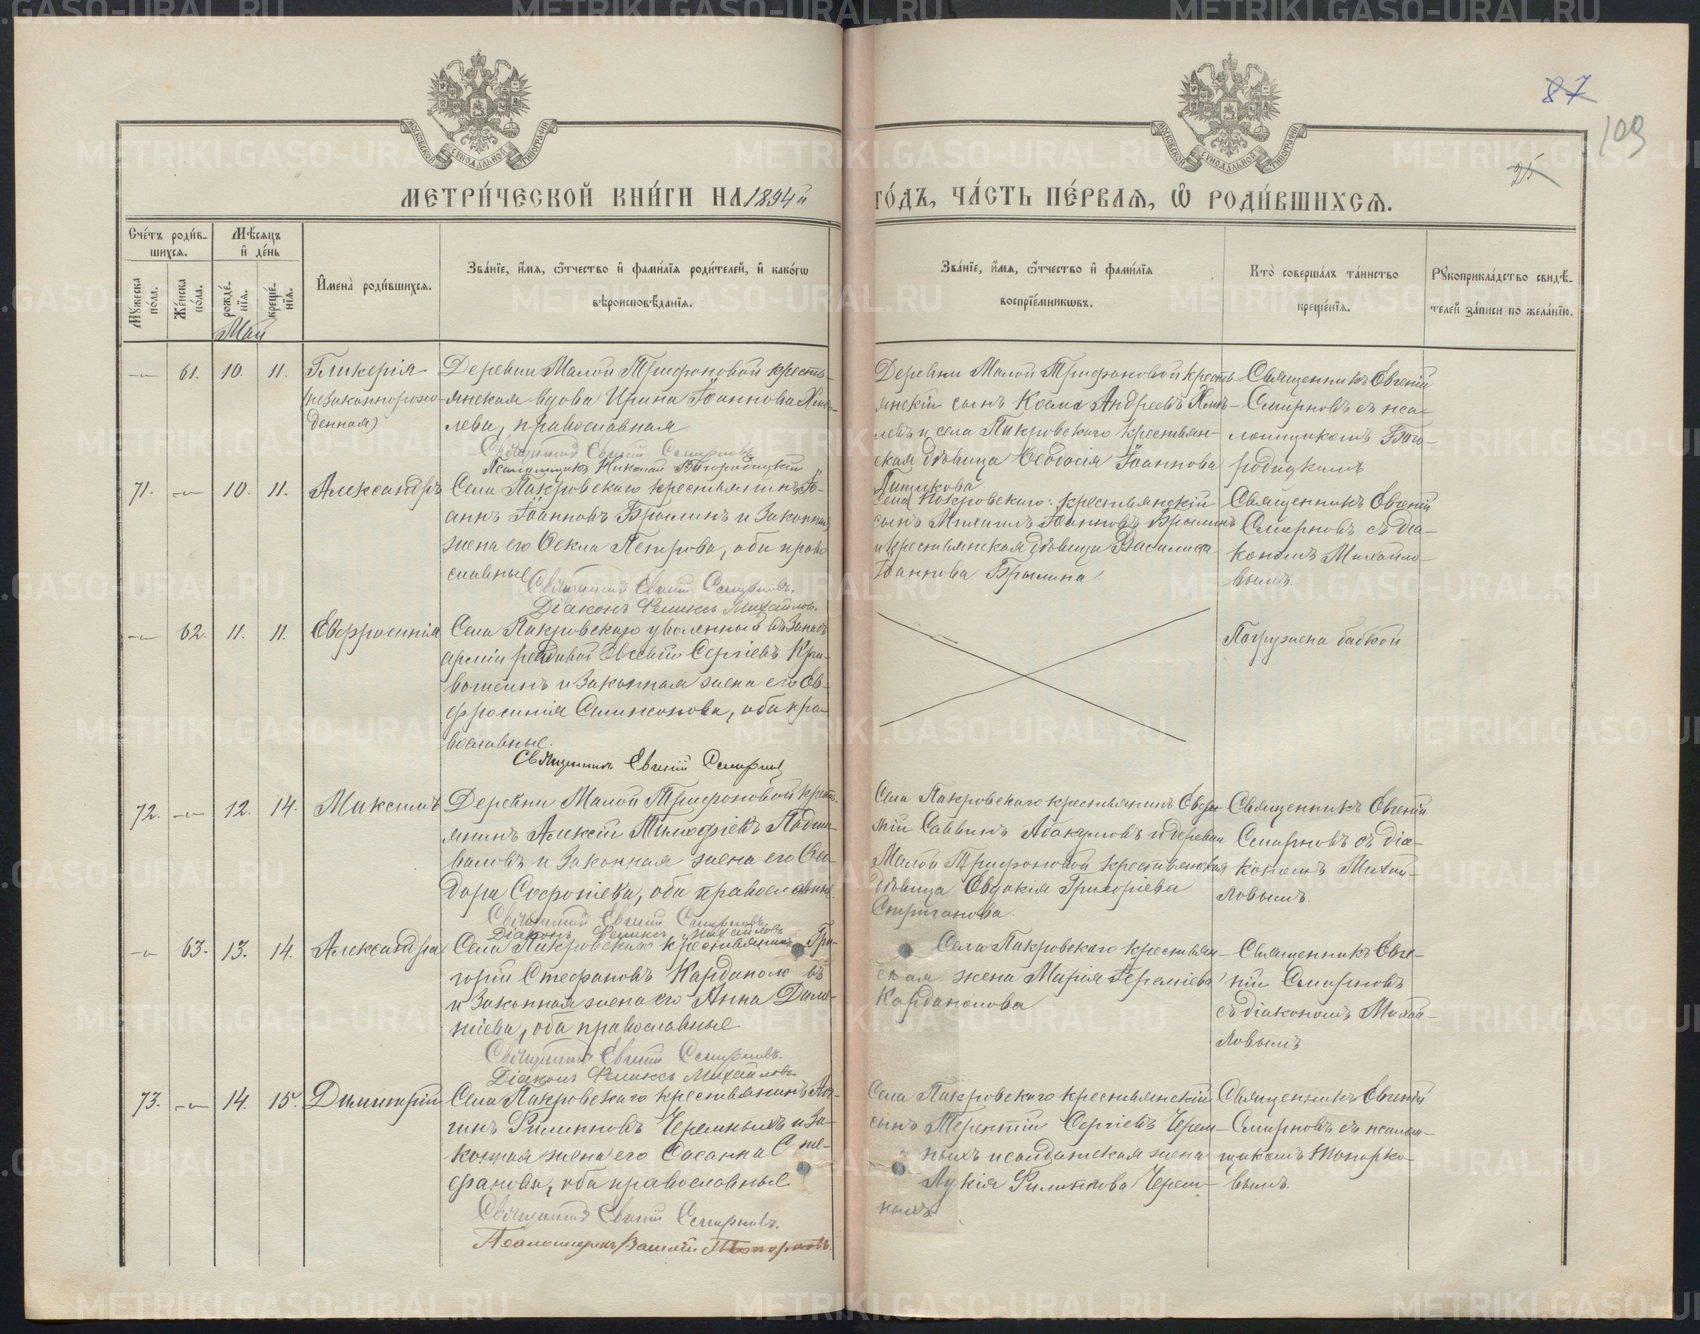 МЕТРИ́ЧЕСКОЙ КНИ́ГИ НА 1894й ГО́ДЪ, ЧА́СТЬ ПЕ́РВАЯ, Ѽ РОДИ́ВШИХСЯ.
87
109
25
Счетъ роди́в-
шихся.
Мѣсяцъ
и де́нь
Мужеска
пола.
Женска
пола.
рожде́-
нїя.
креще́-
нїя.
Имена̀ роди́вшихся.
Зва́нїе, и́мя, ѻ́тчество и фами́лїя роди́телей, и како́гѡ
вѣроисповѣ́данїя.
Зва́нїе, и́мя, ѻ́тчество и фами́лїя
воспрїе́мникѡвъ.
Кто̀ соверша́лъ та́инство
креще́нїя.
Рꙋкоприкла́дство свидѣ́-
телей за́писи по жела́нїю.
Май
— 61. 10. 11. Гликерія
(незаконнорож-
денная)
Деревни Малой Трифоновой кресть-
янская вдова Ирина Іоаннова
лева, православная
Священникъ Евгеній Смирновъ
Псаломщикъ Николай Богородицкій
Деревни Малой Трифоновой кресть-
янскій сынъ Косма Андреевъ
левъ и села Покровскаго крестьян-
ская дѣвица Ѳеодосія Іоаннова
Пищикова
Священникъ Евгеній
Смирновъ съ пса-
ломщикомъ Бого-
родицкимъ
71. — 10. 11. Александръ
Села Покровскаго крестьянинъ Іо-
аннъ Іоанновъ Брылинъ и законная
жена его Ѳекла Петрова, оба право
славные
Священникъ Евгеній Смирновъ.
Діаконъ Феликсъ Михайловъ.
Села Покровскаго: крестьянскій
сынъ Михаилъ Іоанновъ Брылинъ
и крестьянская дѣвица Василиса
Іоаннова Брылина
Священникъ Евгеній
Смирновъ съ діа-
кономъ Михайло-
вымъ.
— 62. 11. 11. Евфросинія
Села Покровскаго уволенный въ запасъ
арміи рядовой Евсевій Сергіевъ Кри-
вошеинъ и законная жена его Ев-
фросинія Симеонова, оба пра-
вославные.
Священникъ Евгеній Смирновъ
Погружена бабкой
72. — 12. 14. Максимъ
Деревни Малой Трифоновой кресть-
янинъ Алексій Тимофіевъ Подши-
валовъ и законная жена его Ѳео-
дора Софроніева, оба православные.
Священникъ Евгеній Смирновъ.
Діаконъ Феликсъ Михайловъ
Села Покровскаго крестьянинъ
мій Саввинъ Абакумовъ и деревни
Малой Трифоновой крестьянская
дѣвица Евдокія Григоріева
Спириганова.
Священникъ Евгеній
Смирновъ съ діа-
кономъ Михай-
ловымъ.
— 63. 13. 14. Александра
Села Покровскаго крестьянинъ Гри-
горій Стефановъ Карданоловъ
и законная жена его Анна Діони-
сіева, оба православные
Священникъ Евгеній Смирновъ.
Діаконъ Феликсъ Михайловъ
Села Покровскаго крестьян-
ская жена Марія Іереміева
Карданолова
Священникъ Евге-
ній Смирновъ
съ діакономъ Михай-
ловымъ
73. — 14. 15. Димитрій
Села Покровскаго крестьянинъ Лон-
гинъ Филипповъ Черемныхъ и за-
конная жена его Сосанна Сте-
фанова, оба православные
Священникъ Евгеній Смирновъ.
Псаломщикъ Василій Топорковъ
Села Покровскаго крестьянскій
сынъ Терентій Сергіевъ Черем-
ныхъ и солдатская жена
Лукія Филиппова Черем-
ныхъ
Священникъ Евгеній
Смирновъ съ псалом-
щикомъ Топорко-
вымъ.
METRIKI.GASO-URAL.RU